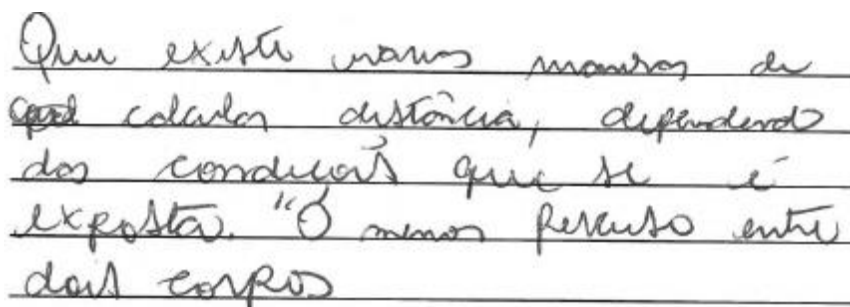 Que existe varias maneiras de
calcular distância, dependendo
das condições que se é
exposta. "O menor Percurso entre
dois corpos